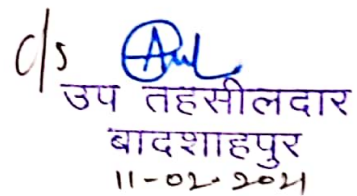 c/s
उप तहसीलदार
बादशाहपुर
11-02-2021